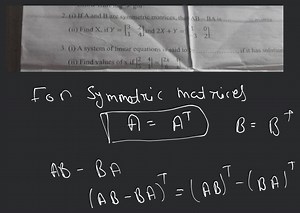 2. (i) If A and B are symmetric matrices, then AB - BA is
(ii) Find X, if Y = and 2X + Y =
3. (i) A system of linear equations is said to be if it has
(ii) Find values of x if
For Symmetric matrices
A = Aᵀ B = Bᵀ
AB - BA
(AB - BA)ᵀ = (AB)ᵀ - (BA)ᵀ